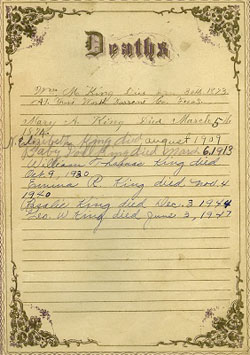 Deaths
Wm M. King Died 30th 1873.
At Fort Worth Tarrant Co. Texas
Mary A. King Died March 5th
1874
Elizabeth King died august 1909
Baby King died March 6, 1913
William Thomas King died
Oct 9, 1930
Emma R. King died Nov. 4
1940
Rosalie King died Dec. 3 1944
Geo. W King died June 3, 1947